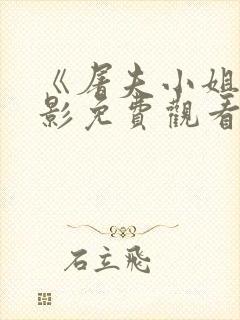 《屠夫小姐
影免費觀看
石立飛